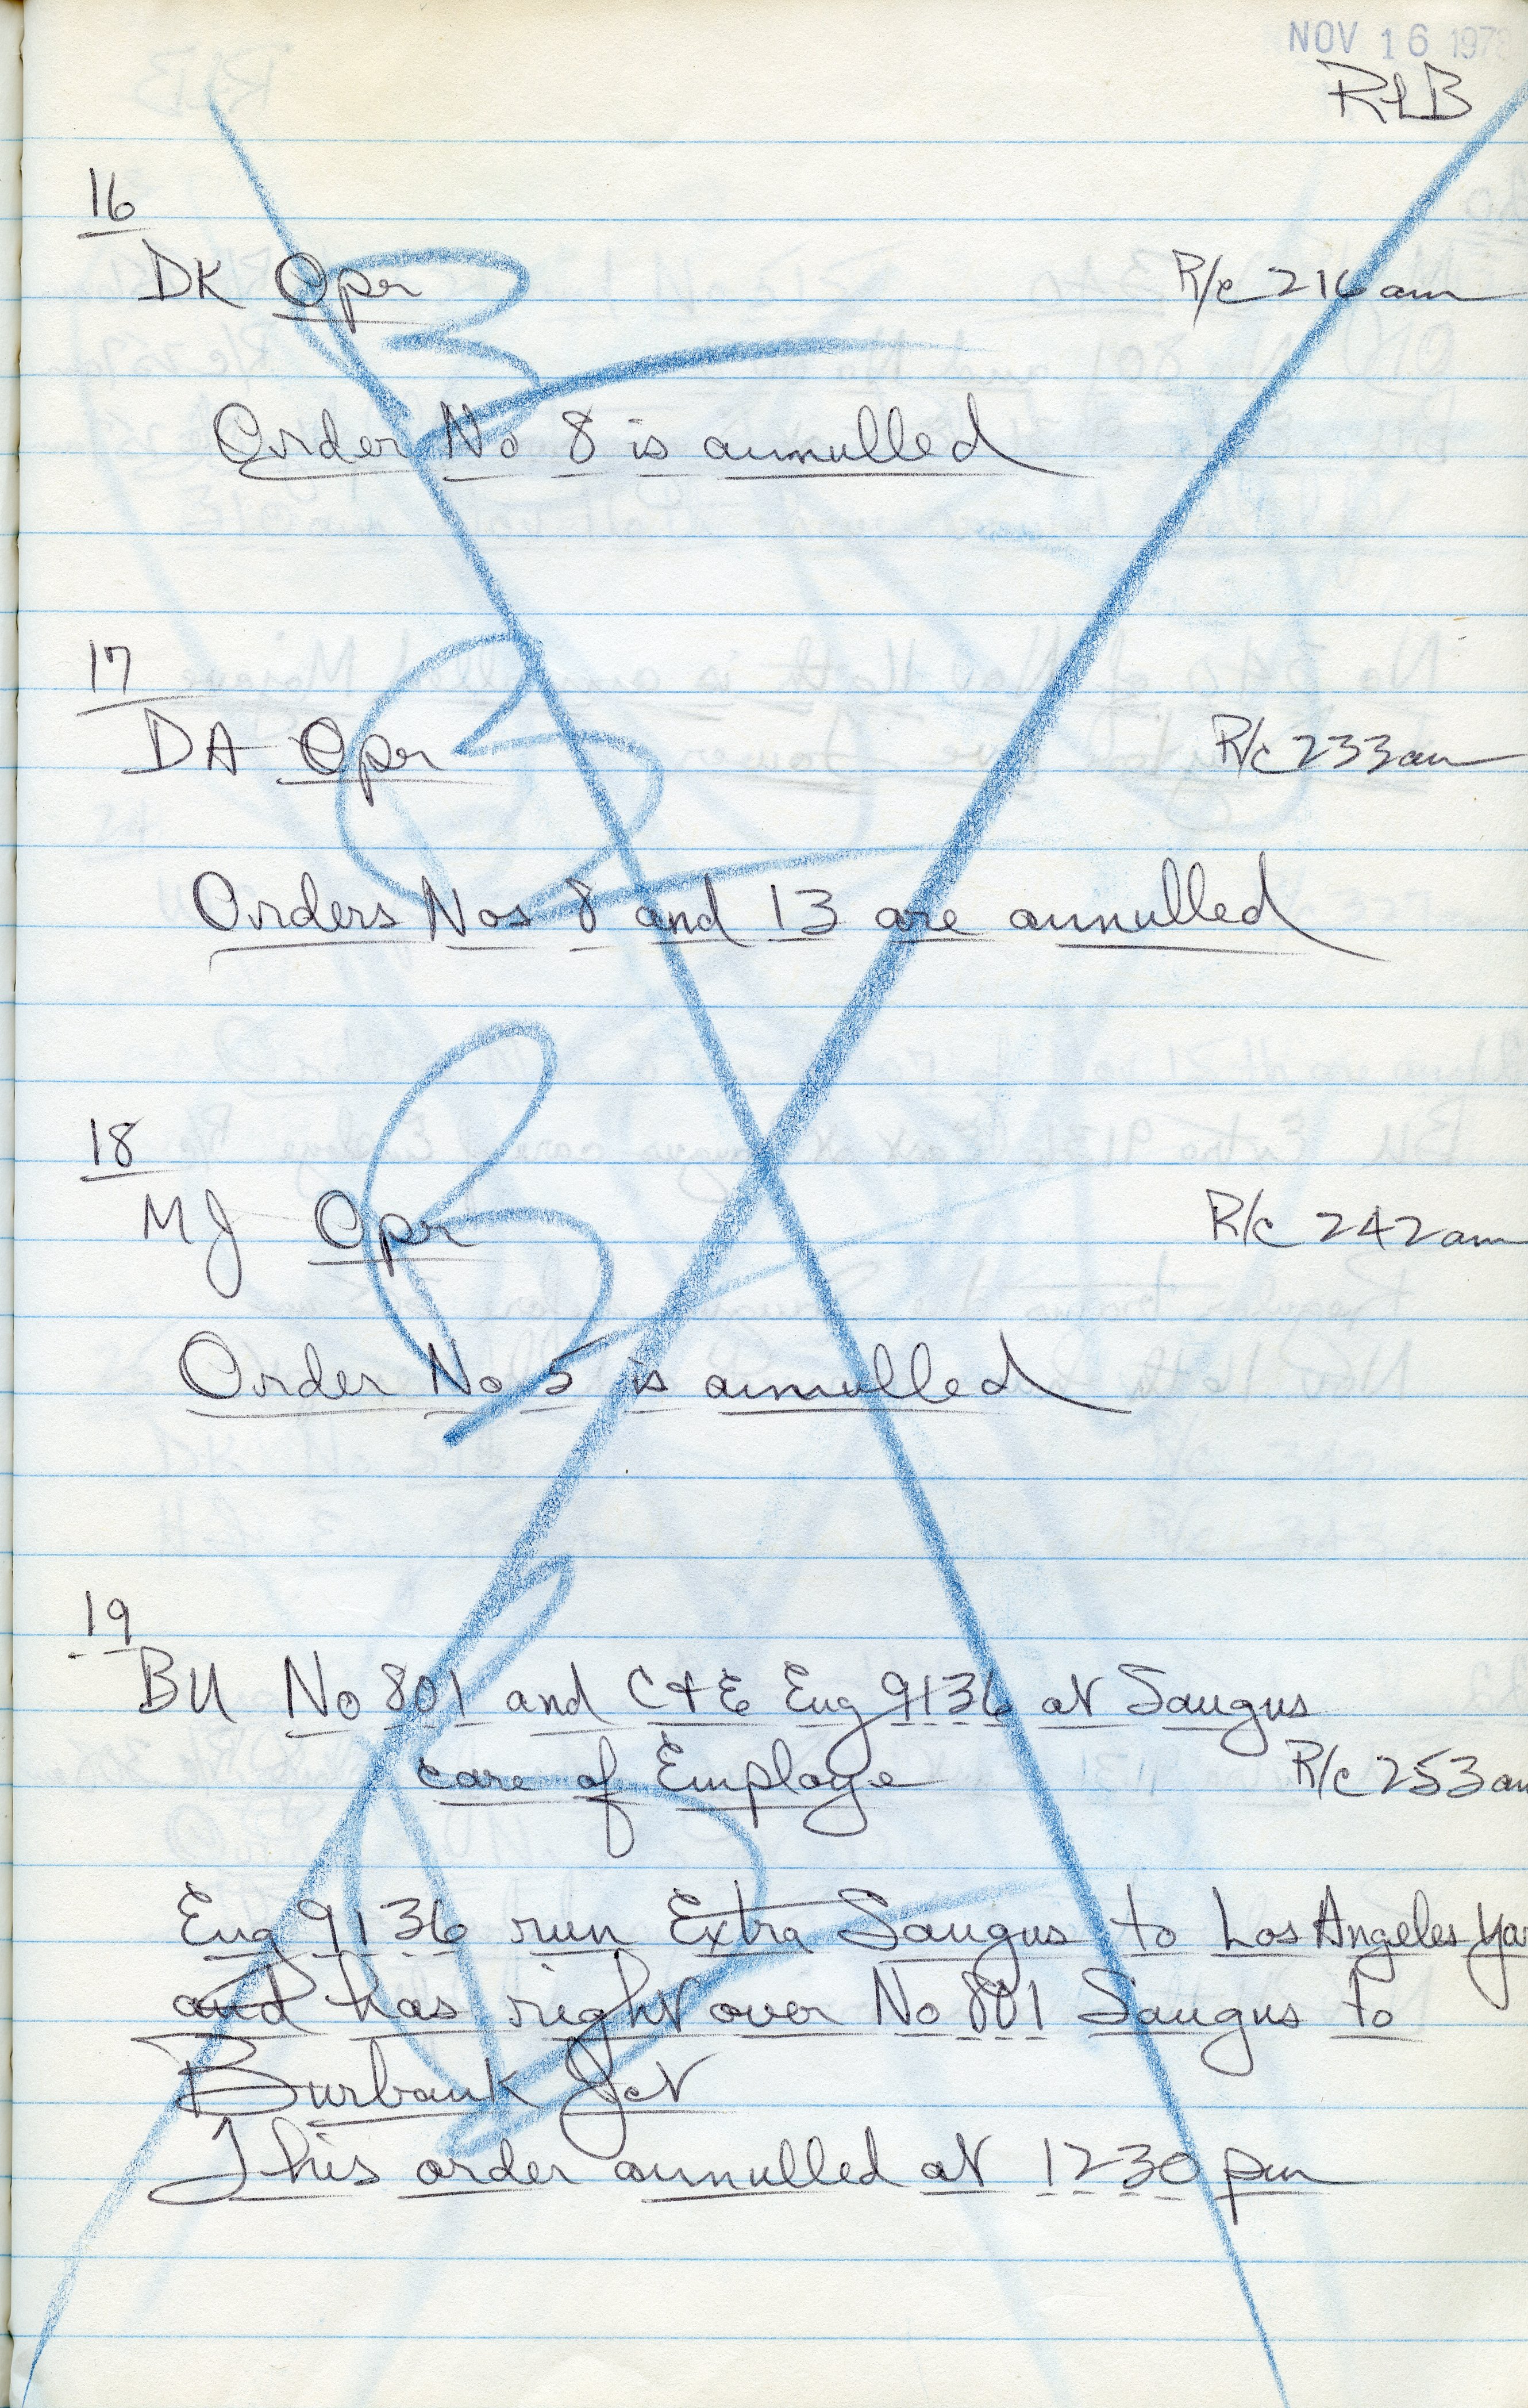 NOV 16 197
RLB
16
DK Opr R/c 216am
Order No 8 is annulled
17
DA Opr R/c 233am
Orders Nos 8 and 13 are annulled
18
MJ Opr R/c 242am
Order No 5 is annulled
19
BU No 801 and C+E Eng 9136 at Saugus
care of Employe R/c 253am
Eng 9136 run Extra Saugus to Los Angeles Ya
and has right over No 801 Saugus to
Burbank Jct
This order annulled at 1230 pm